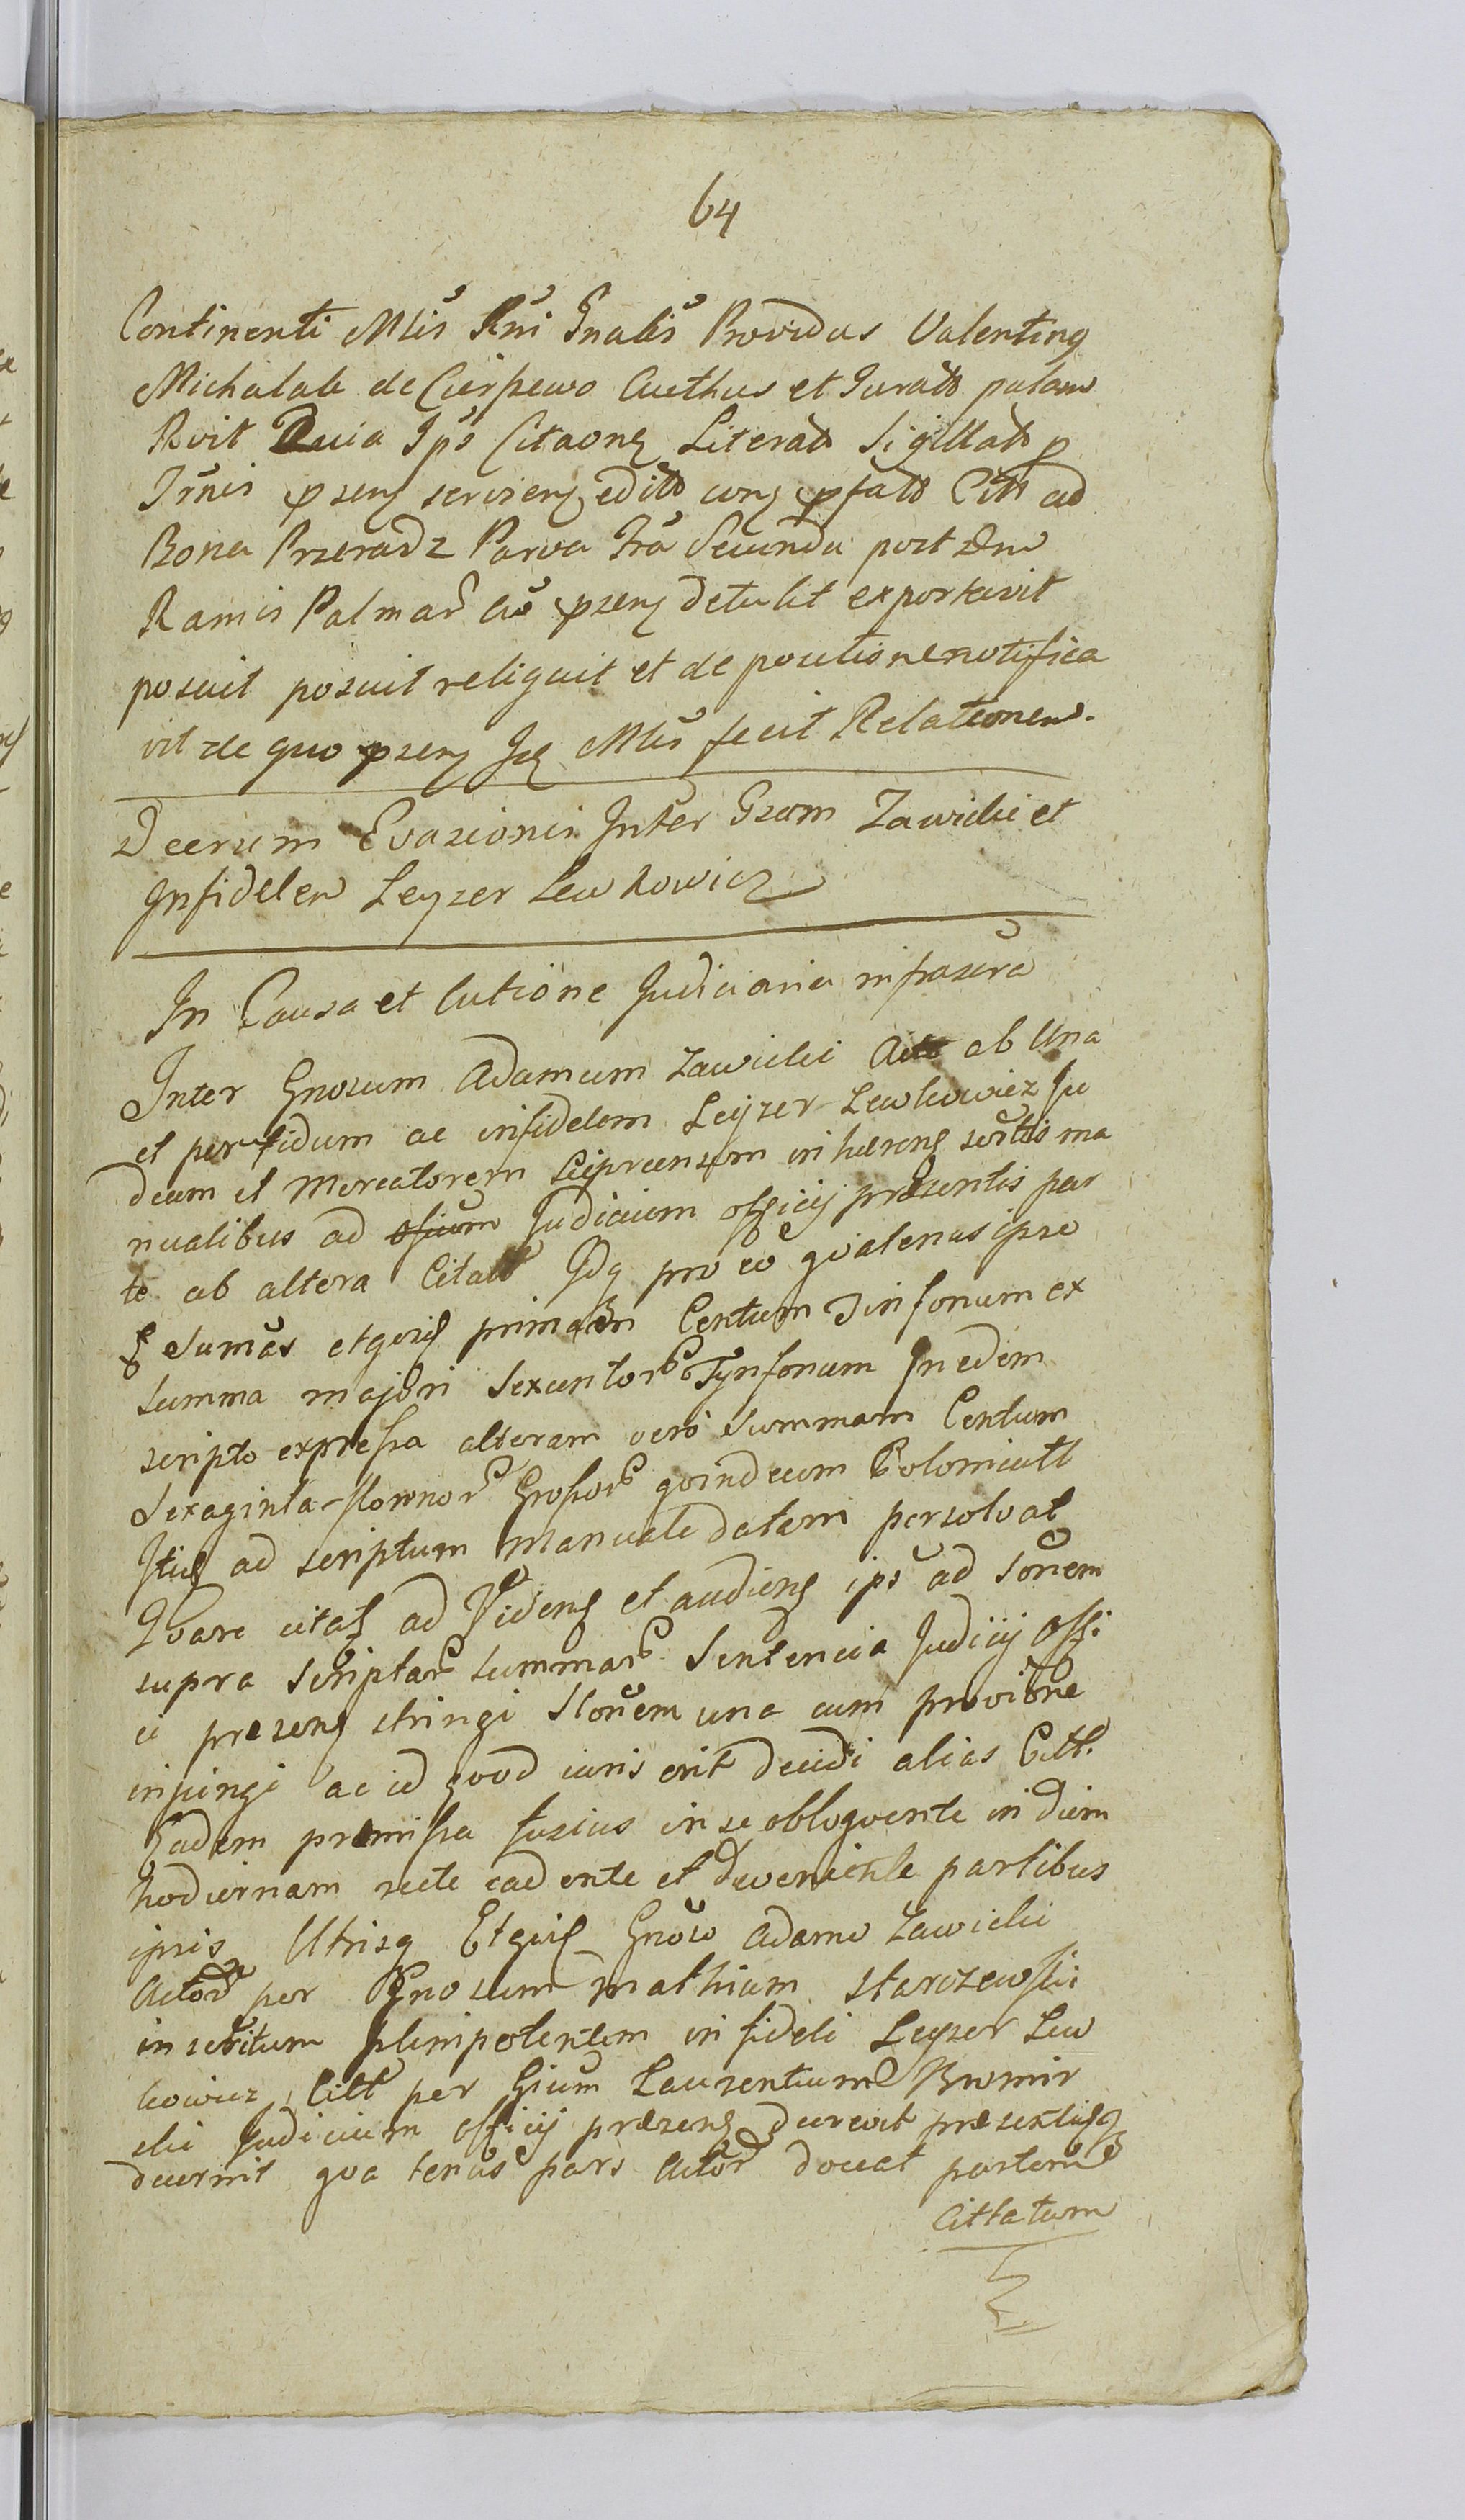 64
Continenti Mlis Rni Gnalis Providus Valentinq
Michalak de Cierpewo Authus et Juratt palam
Rvit Quia Ips Citaonę Literatt Sigillatt p
Irnis psenę servienę editt conę pfatt Citt ad
Bona Przeradz Parva Fra Secunda post Dni
Ramis Palmar psenę detulit exportavit
posuit posuit reliquit et de positione notifica
vit de quo psenę Mlis fecit Relationem.
Decrum Evasionis Inter Gsom Zawicki et
Infidelem Leyzer Lewkowicz
In Causa et Cutione Judiciaria infrascra
Inter Gnosum Adamum Zawicki Act ab Una
et perfidum ac infidelem Leyzer Lewkowicz Ju
deum et Mercatorem Sieprcensem inhærenę scritis ma
nualibus ad Judicium officij præsentis par
te ab altera Citatt Idq pro eo quatenus ipse
Sumas etquię primam Centum Tinfonum ex
summa majori Sexcentor Tynfonum In edem
scripto expressa alteram vero Summam Centum
Sexaginta florenor Grossor quindecim Polonicatt
ad scriptum manuale datam persolvat
Quare citatę ad Videnę et audienę ips ad Sonem
supra scriptar summar Sentencia Judicij Offi
ci presenę stringi Slonem una cum provisne
injungi ac id quod iuris erit decidi alias Citt.
Eadem premissa fusius in se obloquente in diem
hodiernam recte cadente et deveniente partibus
ipsis Utrisq Etquię Gnoso Adamo Zawicki
Actor per Gnosum Mathiam Starczewski
inscritum plenipotentem infideli Leyzer Lew
kowicz Citt per Gium Laurentium Bromir
ski Judicium officij præsenę decrevit præsentisq
decernit quatenus pars Actor doceat partem
Cittatam